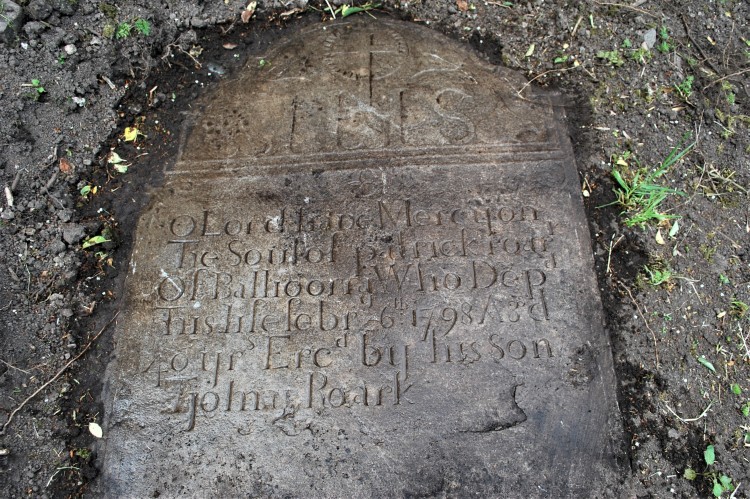 IHS
O Lord have Mercy on
The Soul of Patrick roark
Of Who Depd
This life febr 26th 1798 Agd
40 yrs Ercd by his son
John Roark